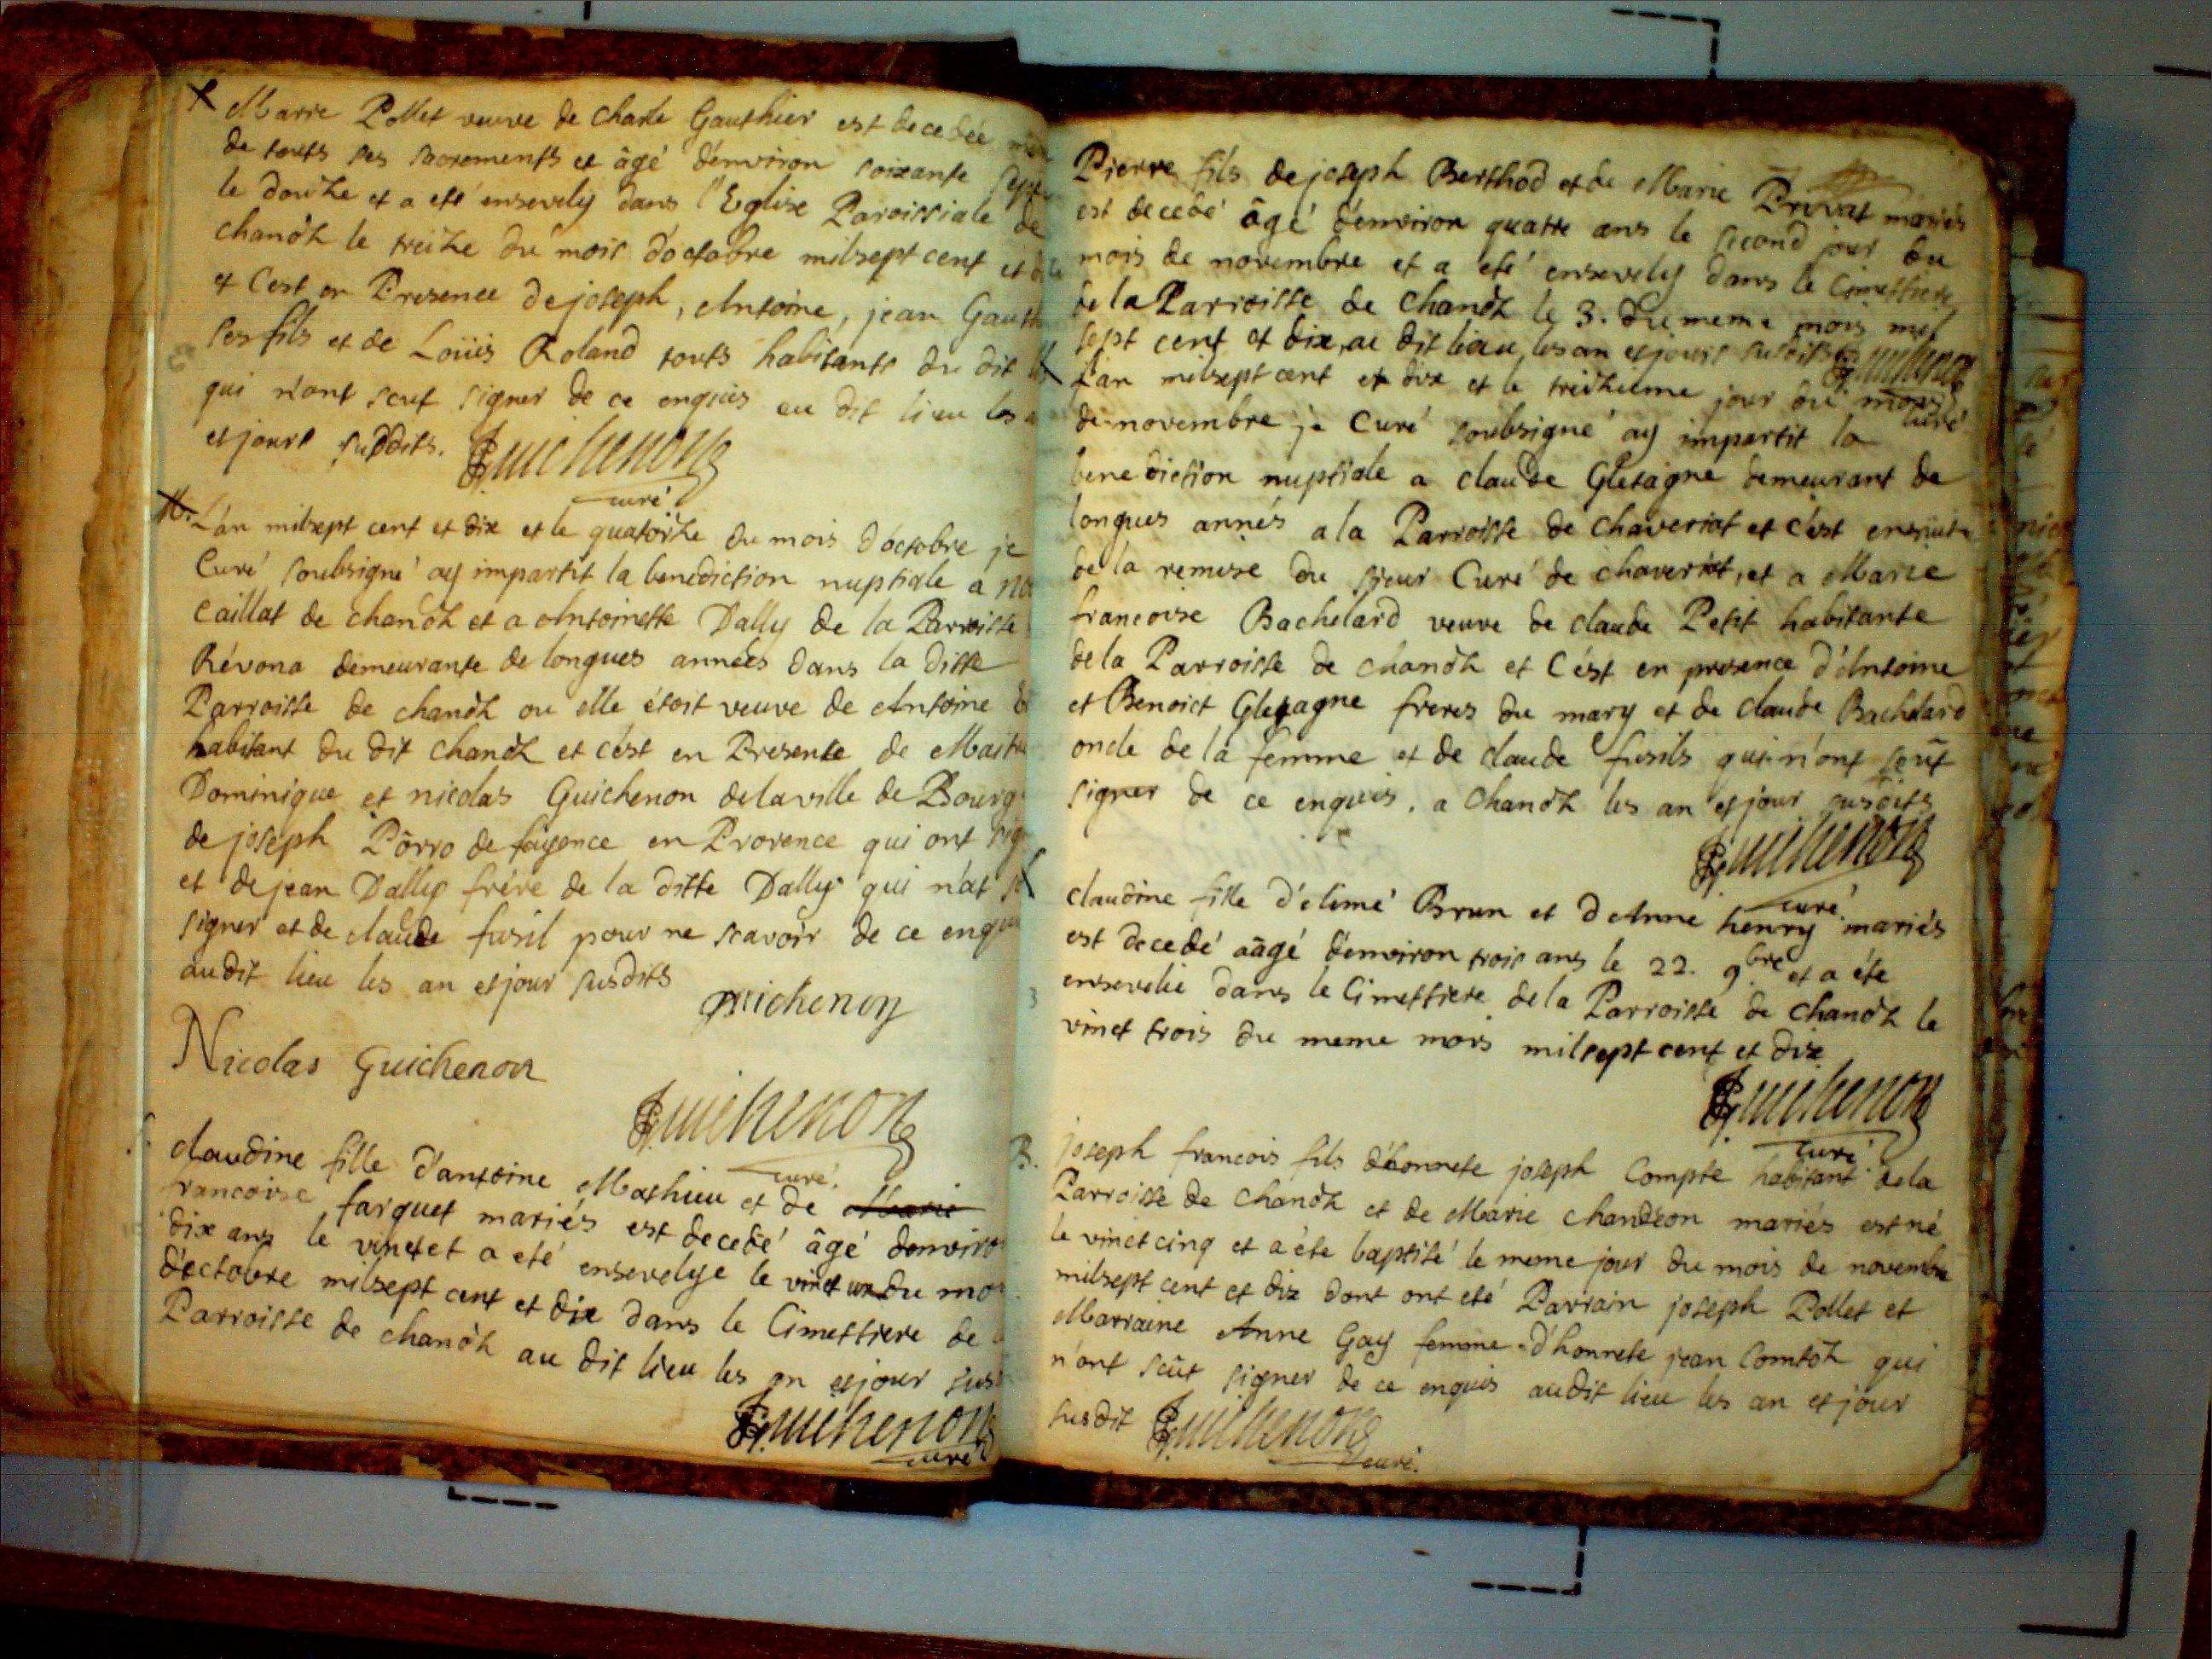 Marie Pollet veuve de Charle Gauthier est decedée
de touts ses sacrements et âgé d'environ soixante
le douze et a eté ensevely dans l'Eglise Paroissiale de
chanôz le treize du mois d'octobre milsept cent et
et C'est en Presence de joseph, Antoine, jean
ses fils et de Loüis Roland touts habitants du dit
qui n'ont sceut signer de ce enquis au dit lieu les
et jours susdits. Guichenon
curé
M. L'an milsept cent et dix et le quatorze du mois d'octobre je
Curé soubsigné ay impartit la benediction nuptiale a
Caillat de chanôz et a Antoinette Dally de la Parroisse
Révona demeurante de longues années dans la ditte
Parroisse de chanôz ou elle étoit veuve de Antoine
habitant du dit chanôz et c'ést en Presente de
Dominique et nicolas Guichenon de la ville de Bourg
de joseph Pôrro de fayence en Provence qui ont
et de jean Dally frére de la ditte Dally qui n'at
signer et de claude fusil pour ne scavoir de ce
audit lieu les an et jour susdits
Guichenon
Nicolas Guichenon
Guichenon
curé.
Claudine fille d'antoine Mathieu et de Marie
francoise farquet mariés est decedé âgé
dix ans le vinct et a eté ensevelye le vinct un du
d'octobre milsept cent et dix dans le Cimettiere de
Parroisse de chanôz au dit lieu les an et jour
Guichenon
curé
Pierre fils de joseph Berthod et de Marie Privat mariés
est decedé âgé d'environ quatre ans le second jour du
mois de novembre et a eté ensevely dans le Cimettiere
de la Parroisse de Chanôz le 3. du meme mois mil
sept cent et dix, au dit lieu, les an et jours susdits Guichenon
curé
L'an milsept cent et dix et le treiziéme jour du mois
de novembre je Curé soubsigné ay impartit la
benediction nuptiale a claude Gletagne demeurant de
longues annés a la Parroisse de chaveriat et c'ést ensuite
de la remise du sieur Curé de chaveriat, et a Marie
francoise Bachelard veuve de claude Petit habitante
de la Parroisse de chanôz et C'ést en presence d'Antoine
et Benoict Gletagne freres du mary et de claude Bachelard
oncle de la femme et de claude fusils qui n'ont sceût
signer de ce enquis. a Chanôz les an et jour susdits
Guichenon
curé.
claudine fille d'Aimé Brun et d'Anne henry mariés
est decedé aâgé d'environ trois ans le 22. 9bre et a éte
ensevelie dans le Cimettiere de la Parroisse de Chanôz le
vinct trois du meme mois milsept cent et dix
Guichenon
curé
B. joseph francois fils d'honnete joseph Compte habitant de la
Parroisse de Chanôz et de Marie chandeon mariés est né
le vinct cinq et a éte baptisé le meme jour du mois de novembre
milsept cent et dix dont ont eté Parrain joseph Pollet et
Marraine Anne Gay femme d'honnete jean Comtoz qui
n'ont sceût signer de ce enquis audit lieu les an et jour
susdit Guichenon
curé.